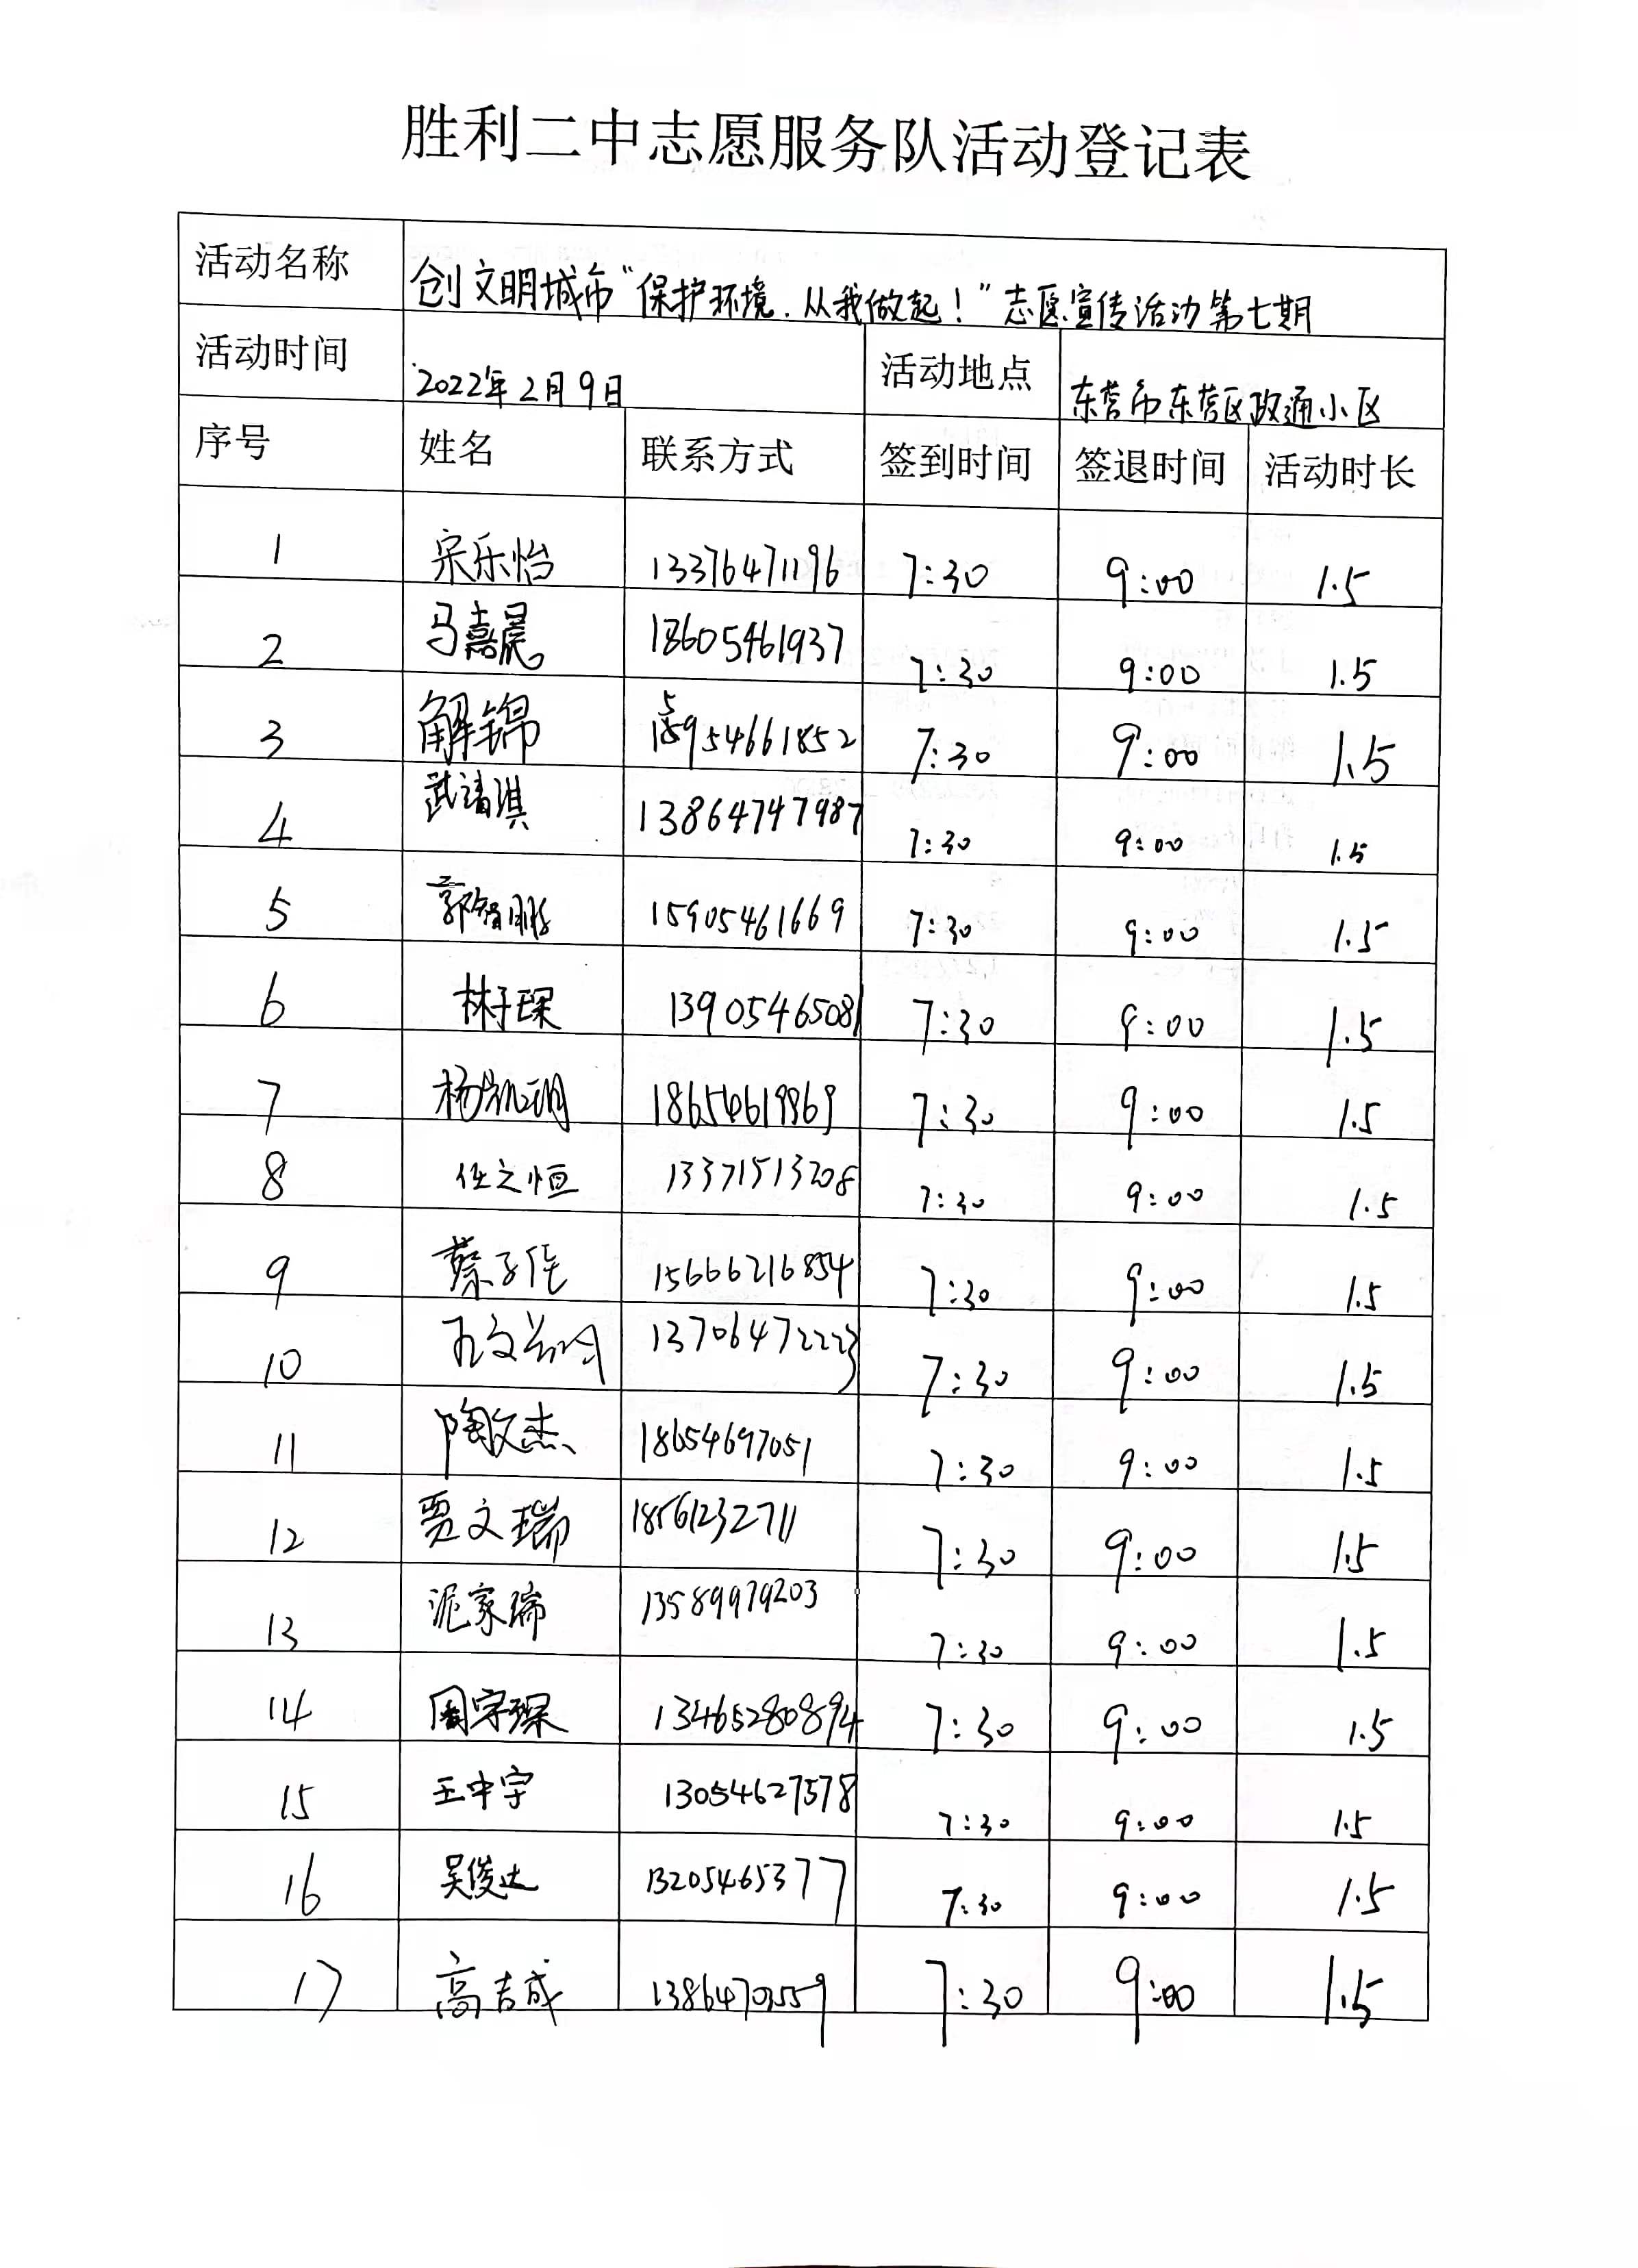 胜利二中志愿服务队活动登记表
活动名称 创文明城市"保护环境.从我做起!"志愿宣传活动第七期
活动时间 2022年2月9日 活动地点 东营市东营区政通小区
序号 姓名 联系方式 签到时间 签退时间 活动时长
1 宋乐怡 13376471196 7:30 9:00 1.5
2 马嘉晨 18605461937 7:30 9:00 1.5
3 解锦 15954661852 7:30 9:00 1.5
4 武靖淇 13864747987 7:30 9:00 1.5
5 郭智鹏 15905461669 7:30 9:00 1.5
6 林子琛 13905465081 7:30 9:00 1.5
7 杨凯玥 18654619869 7:30 9:00 1.5
8 任之恒 13371513208 7:30 9:00 1.5
9 蔡子佳 15666216854 7:30 9:00 1.5
10 13706472223 7:30 9:00 1.5
11 陶文杰 18654697051 7:30 9:00 1.5
12 贾文瑞 18561232711 7:30 9:00 1.5
13 泥家瑞 13589979203 7:30 9:00 1.5
14 周宇琛 13465280894 7:30 9:00 1.5
15 王中宇 13054627578 7:30 9:00 1.5
16 吴俊达 13205465377 7:30 9:00 1.5
17 高吉成 7:30 9:00 1.5